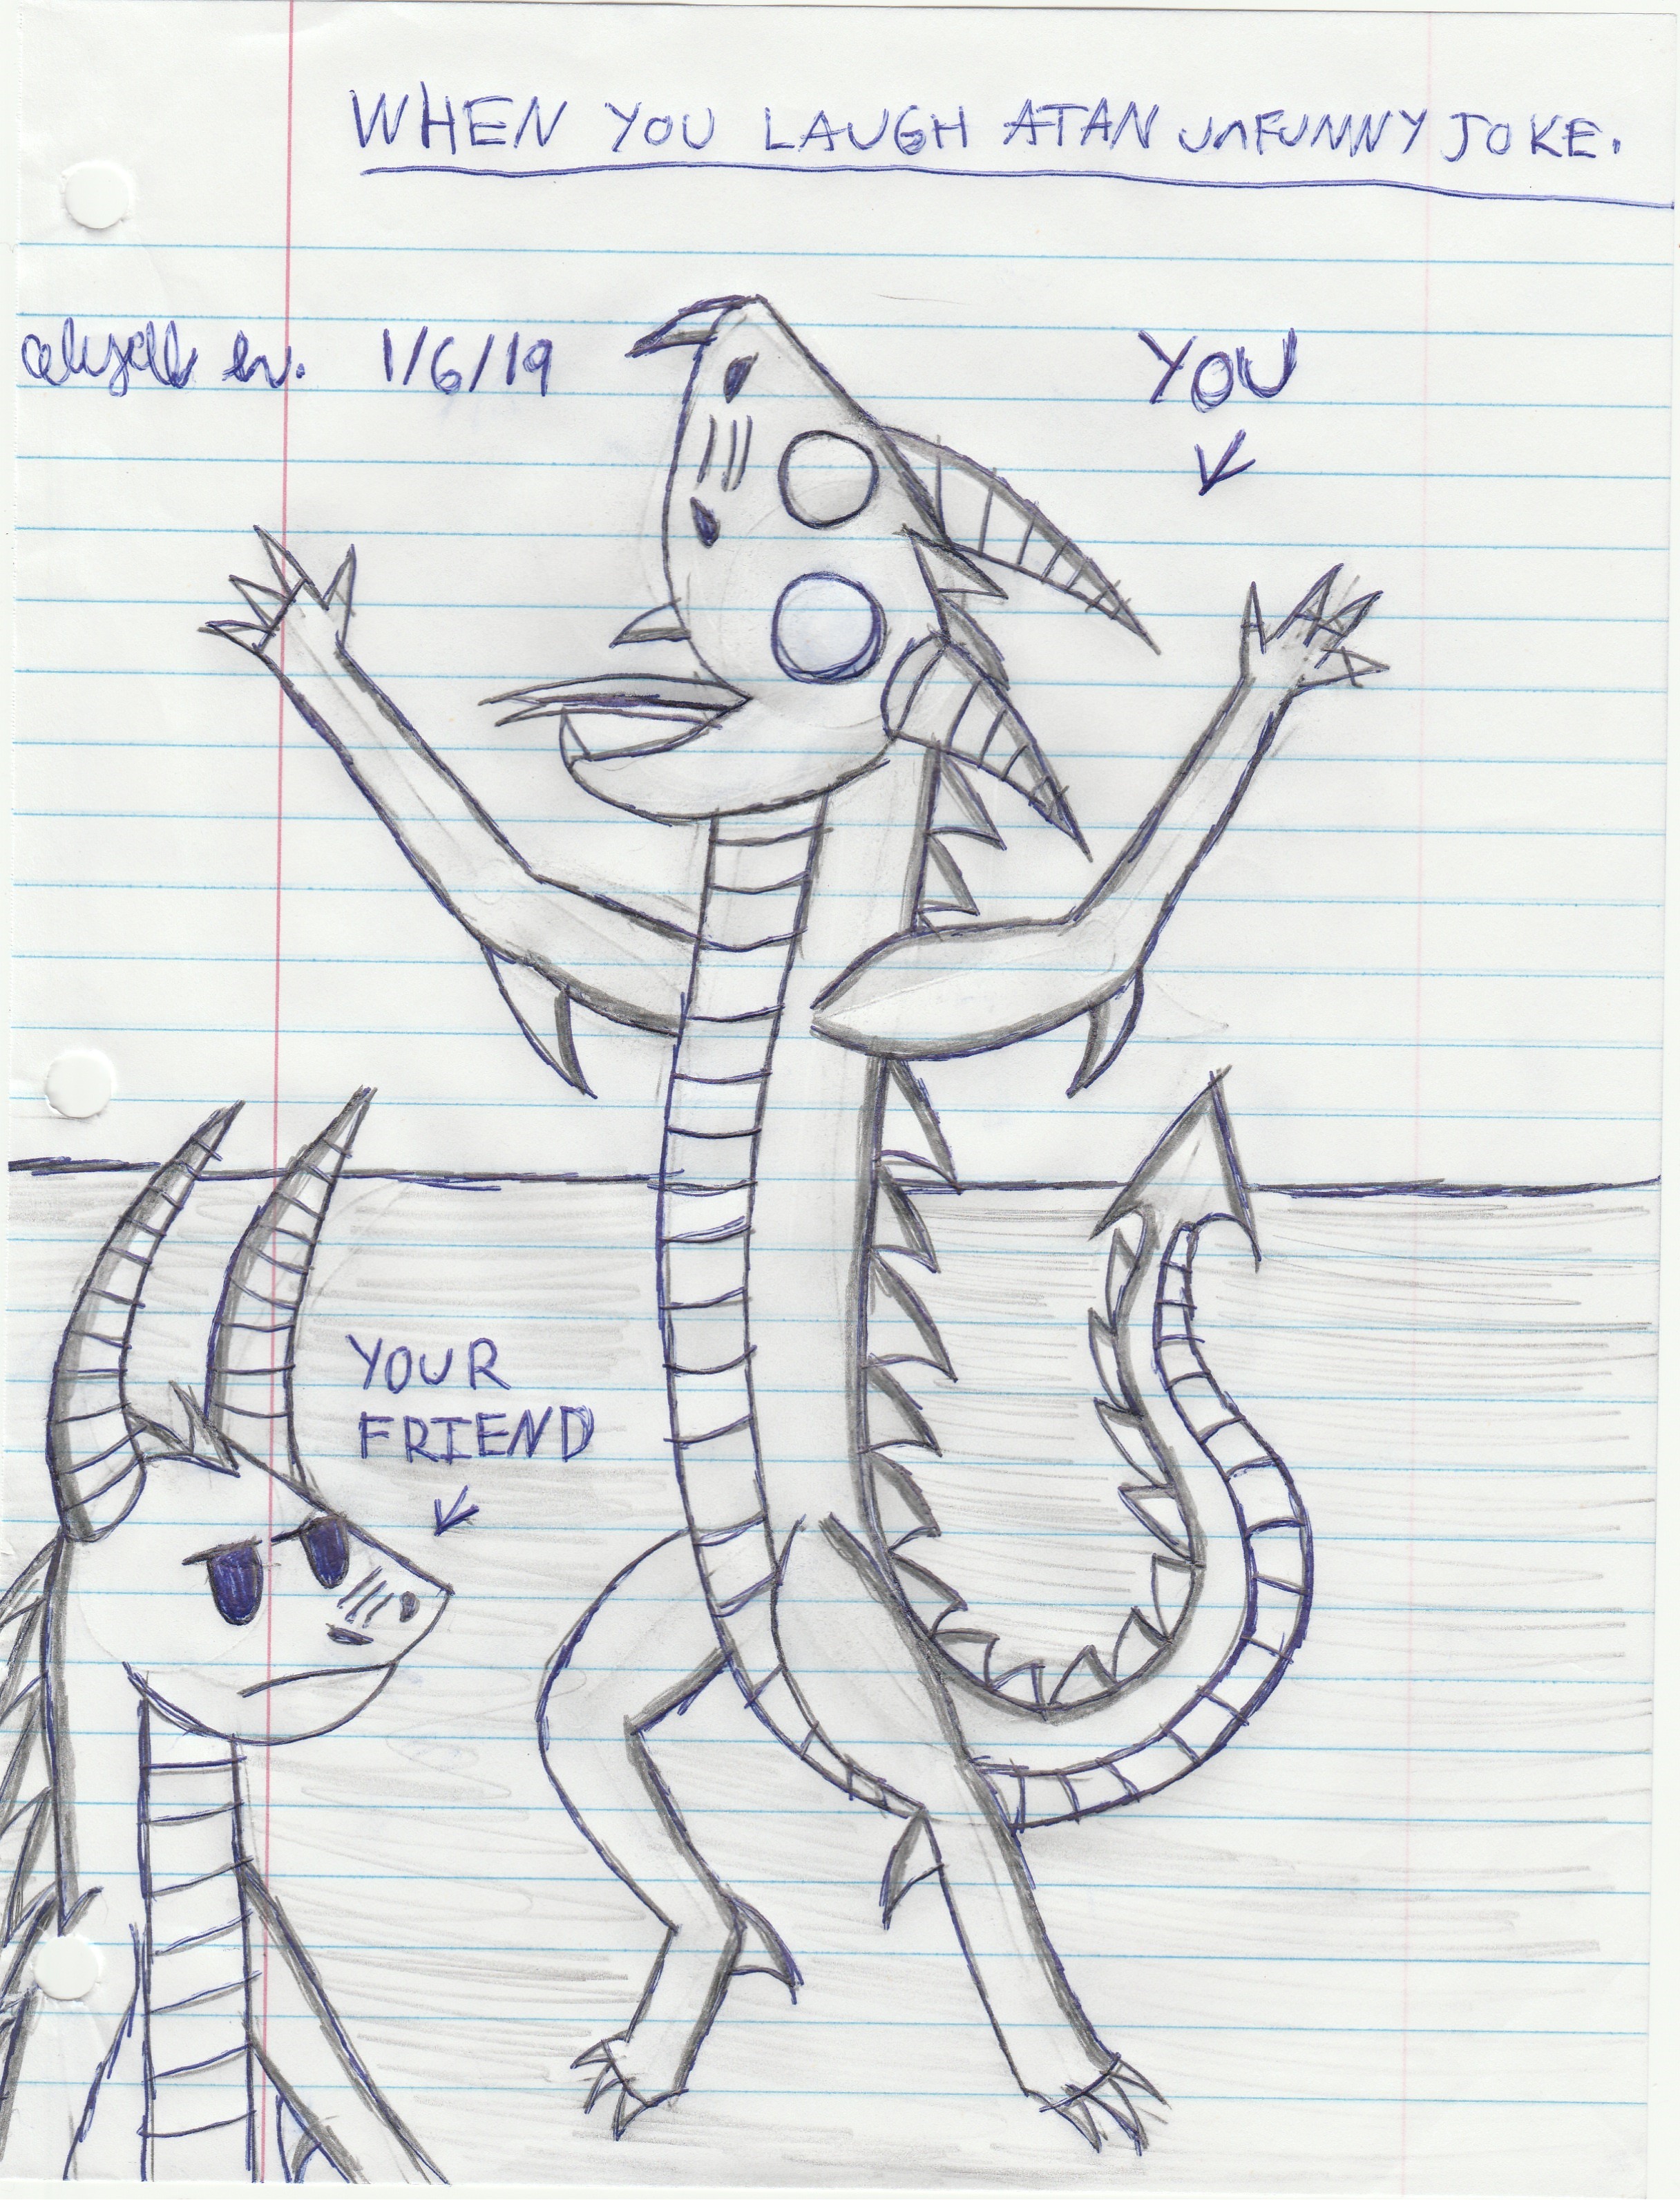 WHEN YOU LAUGH AT AN unFUNNY JOKE.
1/6/19
YOU
YOUR
FRIEND